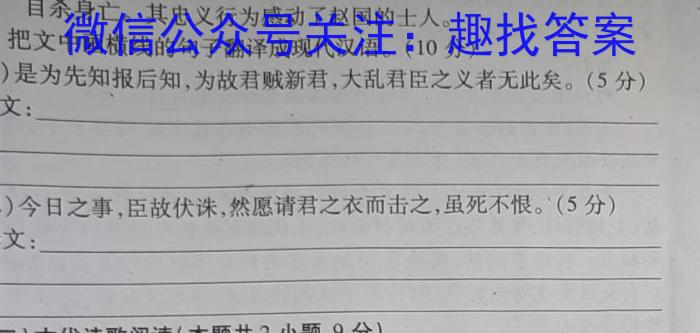 自杀身亡,其忠义行为感动了赵国的士人。
微信公众号关注:趣找答案
把文中画横线的句子翻译成现代汉语。(10分)
)是为先知报后知,为故君贼新君,大乱君臣之义者无此矣。(5分)
文:
)今日之事,臣故伏诛,然愿请君之衣而击之,虽死不恨。(5分)
文:
)古代诗歌阅读(本题共2小题,9分)